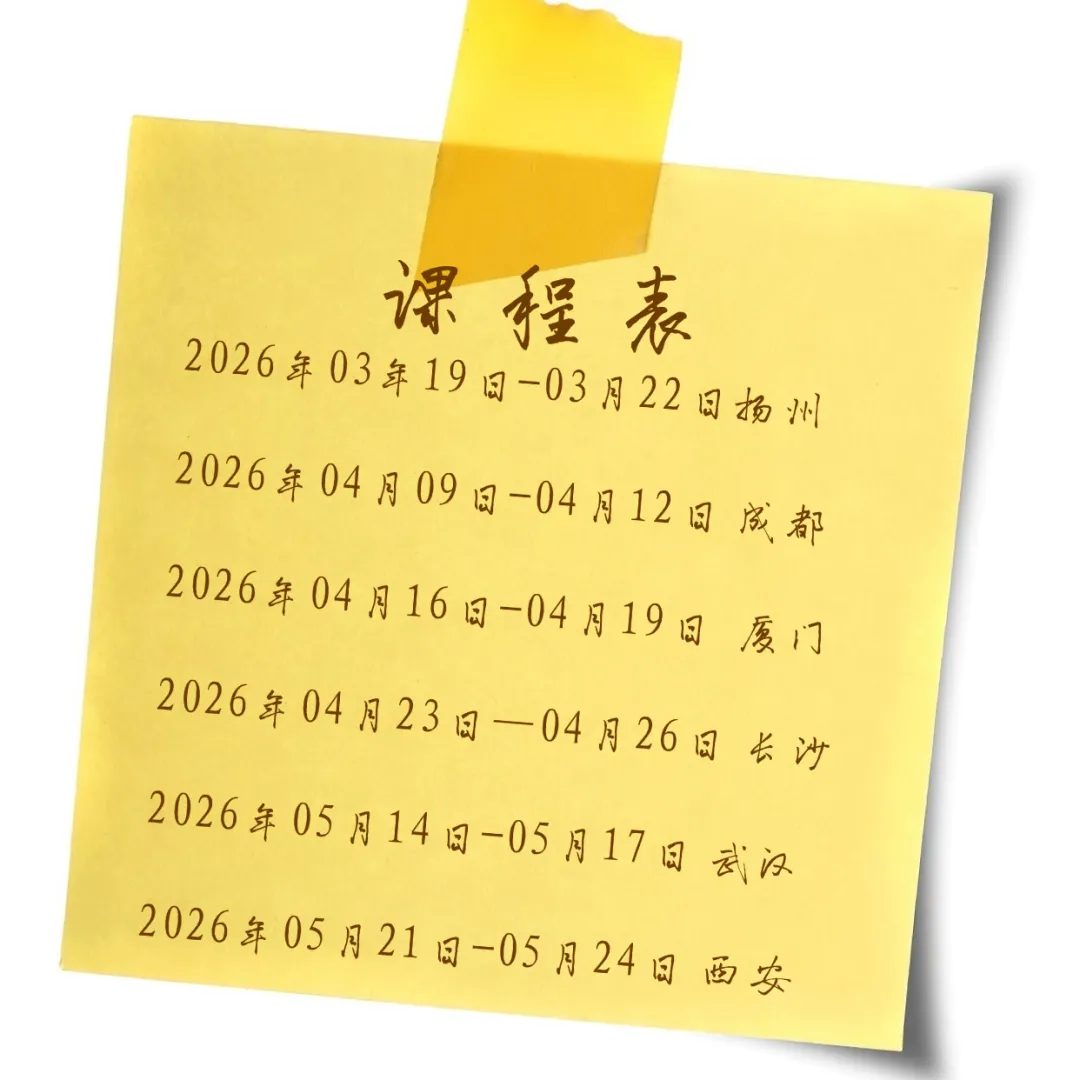 课程表
2026年03年19日-03月22日扬州
2026年04月09日-04月12日 成都
2026年04月16日-04月19日 厦门
2026年04月23日—04月26日 长沙
2026年05月14日-05月17日 武汉
2026年05月21日-05月24日 西安